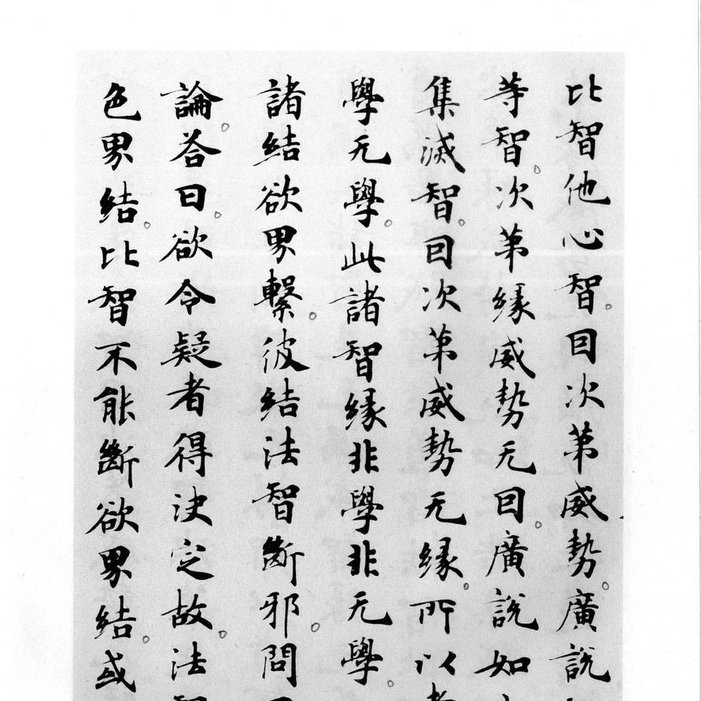 比智他心智。因次第威勢。廣說
等智。次第緣威勢无因。廣說如
集滅智。因次第威勢无緣。所以
學无學。此諸智緣非學非无學。
諸結欲界繫。彼結法智斷邪。問
論荅曰。欲令疑者得決定故。法
色界結。比智不能斷欲界結。或